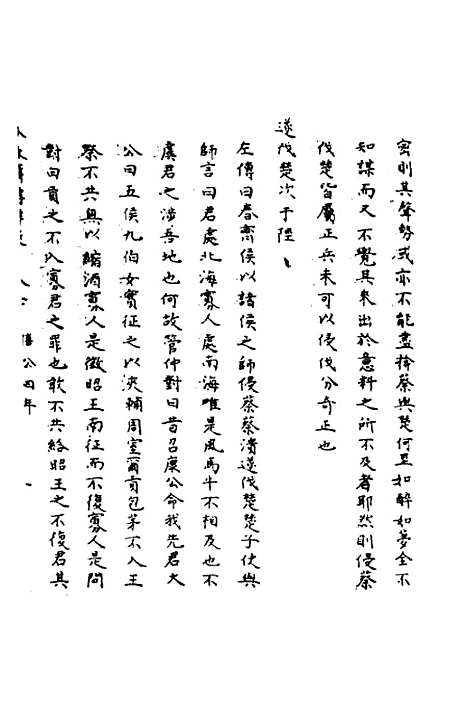 密則其聲勢或亦不能盡揜蔡與楚何至如醉如夢全不
知謀而又不覺其來出於意料之所不及者耶然則侵蔡
伐楚皆屬正兵未可以侵伐分奇正也
遂伐楚次于陘
左傳曰春齊侯以諸侯之師侵蔡蔡潰遂伐楚楚子使與
師言曰君處北海寡人處南海唯是風馬牛不相及也不
虞君之涉吾地也何故管仲對曰昔召康公命我先君大
公曰五侯九伯女實征之以夾輔周室爾貢包茅不入王
祭不共無以縮酒寡人是徵昭王南征而不復寡人是問
對曰貢之不入寡君之罪也敢不共給昭王之不復君其
僖公四年